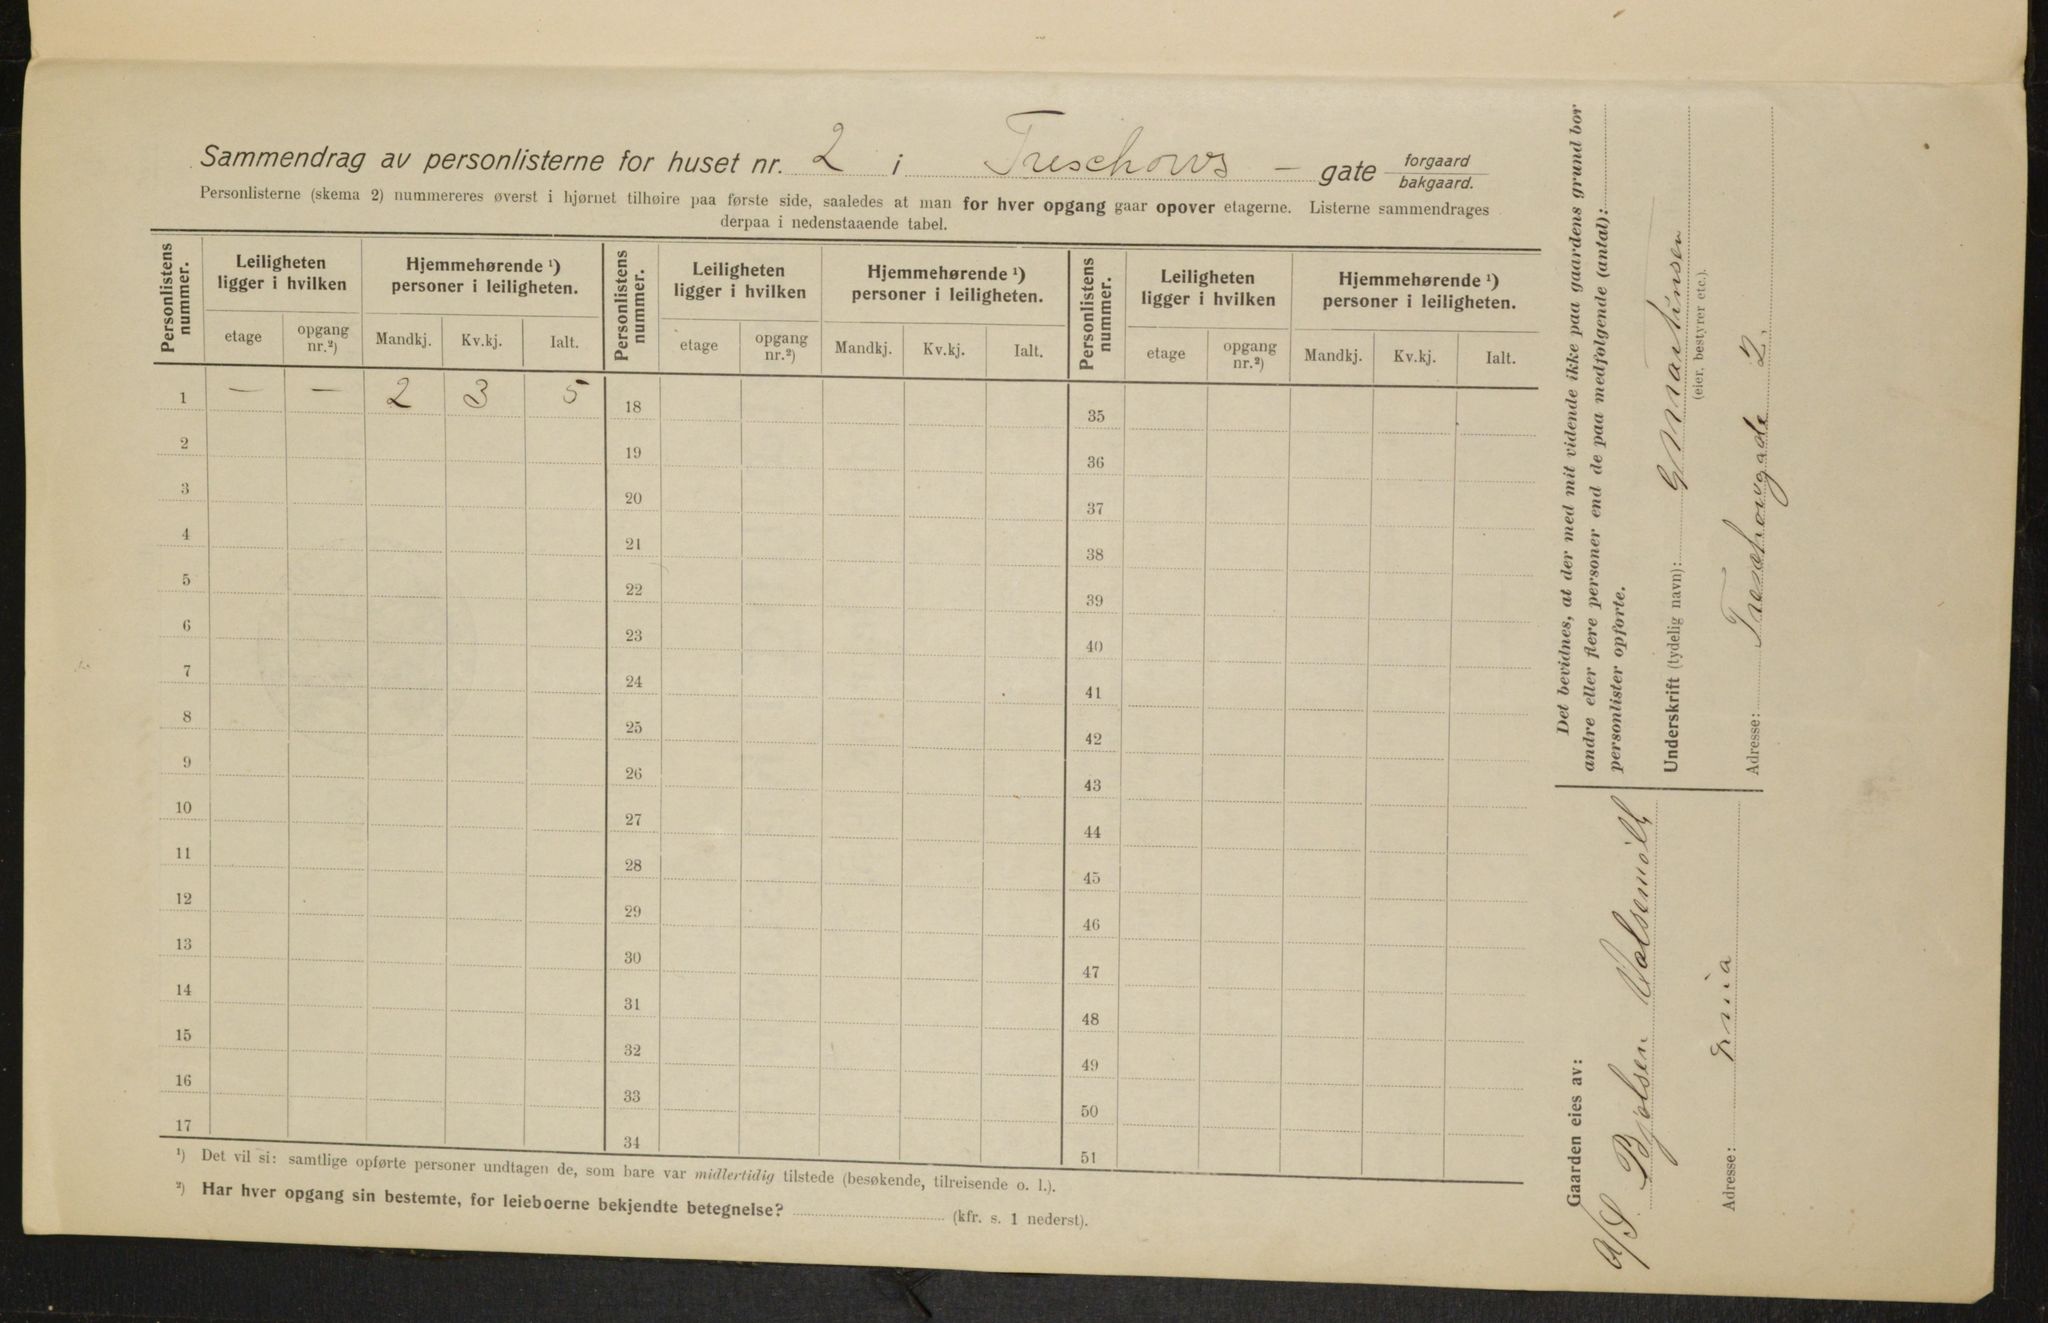 Sammendrag av personlisterne for huset nr. 2 i Treschows - gate forgaard bakgaard.
Personlisterne (skema 2) nummereres øverst i hjørnet tilhøire paa første side, saaledes at man for hver opgang gaar opover etagerne. Listerne sammendrages
derpaa i nedenstaaende tabel.
Personlistens nummer. Leiligheten ligger i hvilken Hjemmehørende ¹) personer i leiligheten. Personlistens nummer. Leiligheten ligger i hvilken Hjemmehørende ¹) personer i leiligheten. Personlistens nummer. Leiligheten ligger i hvilken Hjemmehørende ¹) personer i leiligheten.
etage opgang nr.²) Mandkj. Kv.kj. Ialt. etage opgang nr.²) Mandkj. Kv.kj. Ialt. etage opgang nr.²) Mandkj. Kv.kj. Ialt.
1 — — 2 3 5 18 35
2 19 36
3 20 37
4 21 38
5 22 39
6 23 40
7 24 41
8 25 42
9 26 43
10 27 44
11 28 45
12 29 46
13 30 47
14 31 48
15 32 49
16 33 50
17 34 51
¹) Det vil si: samtlige opførte personer undtagen de, som bare var midlertidig tilstede (besøkende, tilreisende o. l.).
²) Har hver opgang sin bestemte, for leieboerne bekjendte betegnelse? (kfr. s. 1 nederst).
Det bevidnes, at der med mit vidende ikke paa gaardens grund bor
andre eller flere personer end de paa medfølgende (antal):
personlister opførte.
Underskrift (tydelig navn): G Martinsen
(eier, bestyrer etc.).
Adresse: Treschowsgade 2.
Gaarden eies av:
A/S. Bjølsen Valsemølle
Adresse: